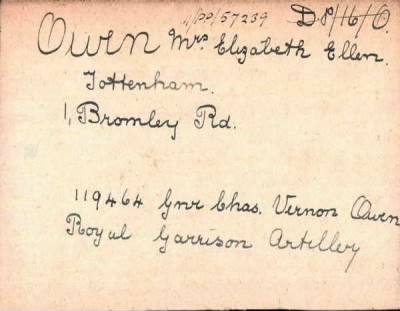 11/PP/57239 D.P/16/O.
Owen Mrs Elizabeth Ellen.
Tottenham.
1, Bromley Rd.
119464 Gnr Chas. Vernon Owen
Royal Garrison Artillery